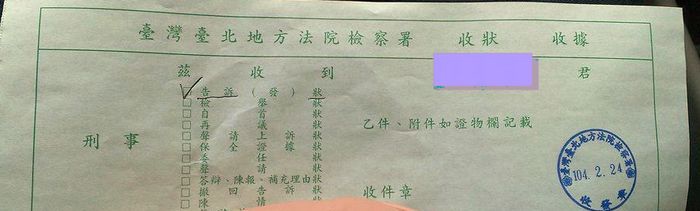 臺灣臺北地方法院檢察署 收狀 收據
茲收到 君
刑事
告訴(發)狀
檢舉狀
自首狀
再議狀
聲請上訴狀
保全證據狀
委任狀
聲請狀
答辯、陳報、補充理由狀
撤回告訴狀
陳情狀
乙件、附件如證物欄記載
收件章
臺灣臺北地方法院檢察署
104.2.24